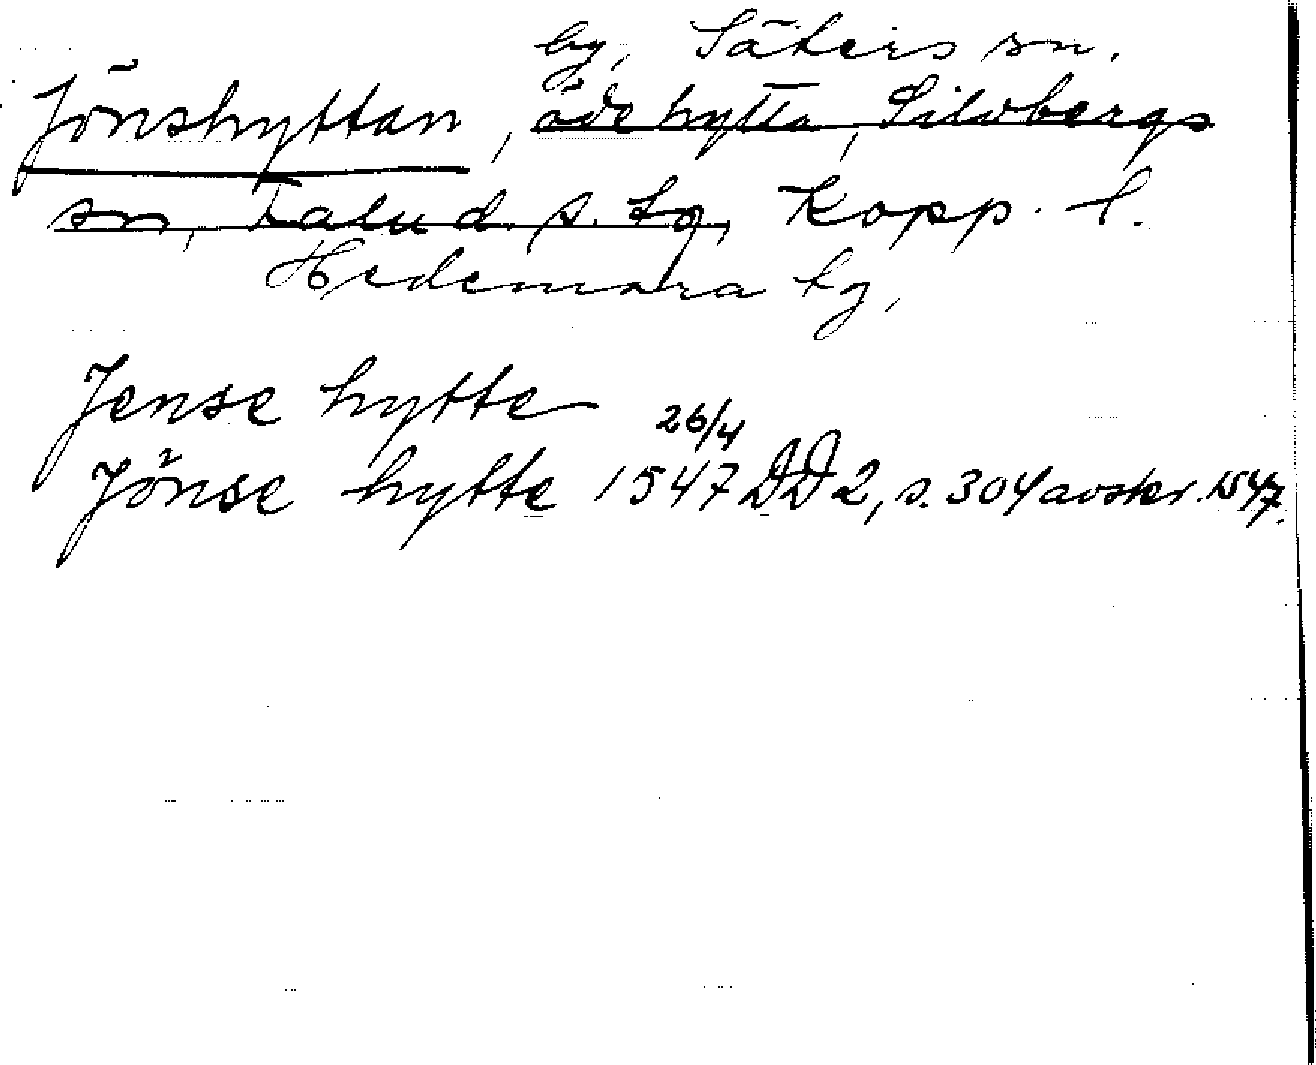 by, Säters sn.
Jönshyttan, öde hytta, Silvbergs
sn, Falu d. s. tg, Kopp. l.
Hedemora tg,
Jense hytte
26/4
Jönse hytte 1547 DD 2, s. 304 avskr. 1547.